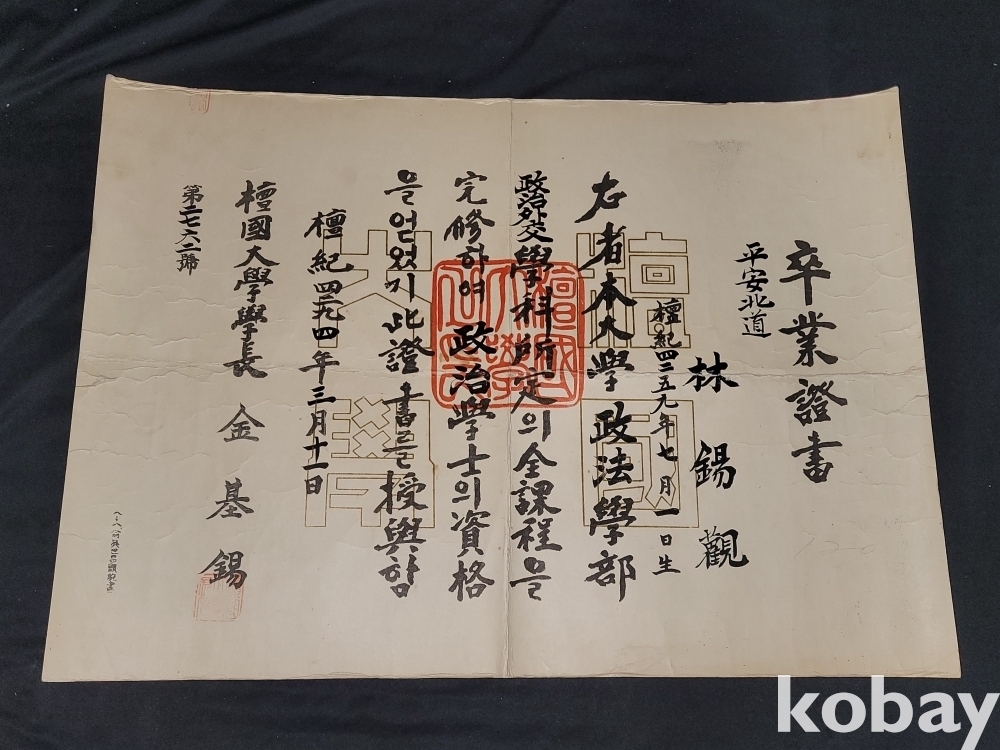 卒業證書
平安北道
林錫觀
檀紀四二五九年七月一日生
右者本大學 政法學部
政治外交學科所定의全課程을
完修하여 政治學士의資格
을얻었기此證書를授與함
檀紀四二九四年三月十一日
檀國大學學長 金基錫
第二七六二號
檀國大學
檀國大學之印
kobay